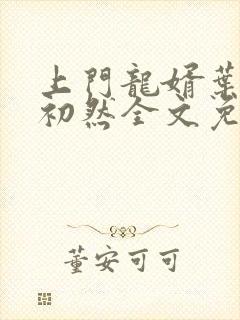 上門龍婿葉
初然全文免
董安可可